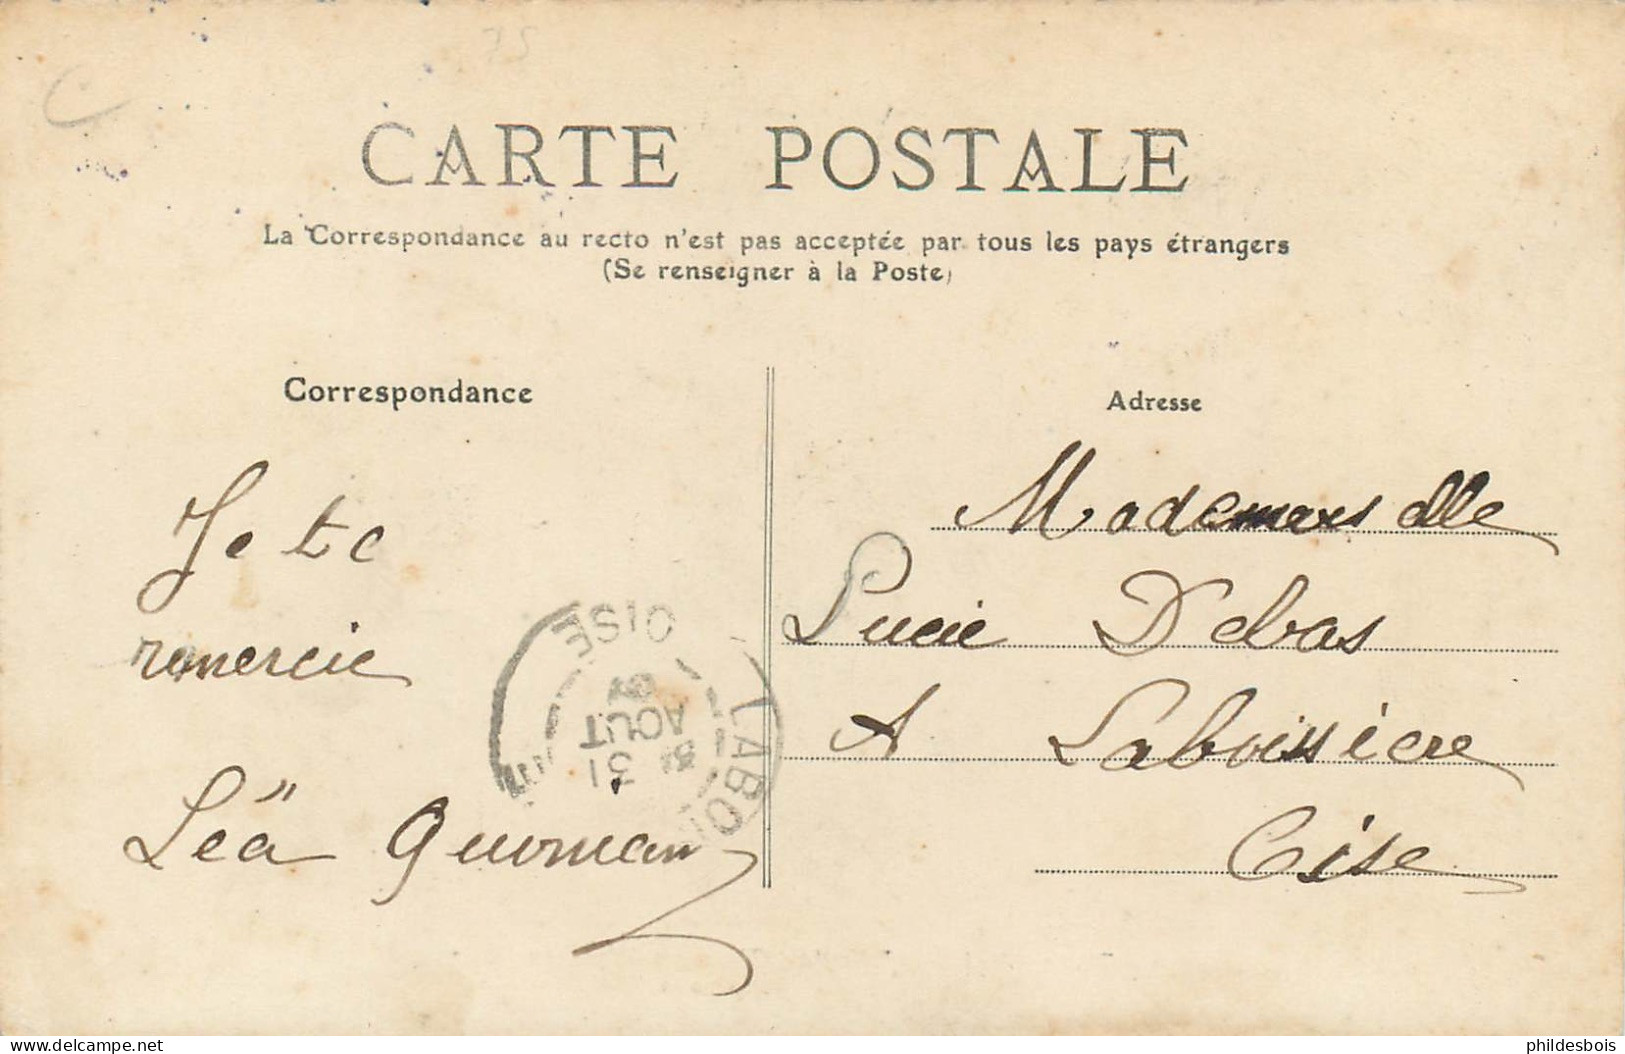 75
CARTE POSTALE
La Correspondance au recto n'est pas acceptée par tous les pays étrangers
(Se renseigner à la Poste)
Correspondance
Adresse
Je te
remercie
Léa
Mademoiselle
Lucie Debas
A Laboissière
Oise
OISE
31
AOUT
phildesbois